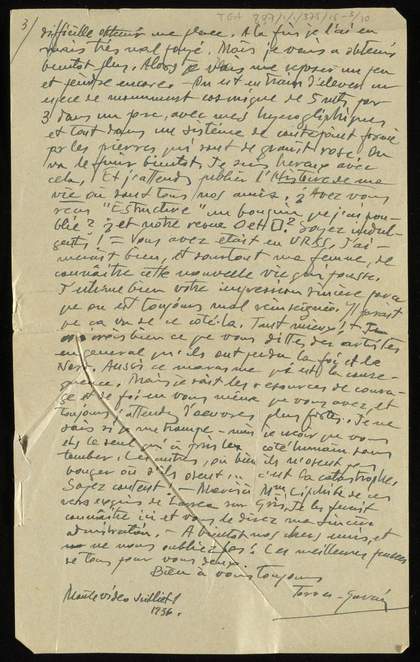 3/
TGA 897/1/1/378/15-3/10
difficile obtenir une place. A la fin je l'ai eu
mais très mal payé. Mais, je vous a obtenir
bientot plus. Alors je vais me reposer un peu
et peindre encore - On est en train d'elever un
espece de monument cosmique de 5 mts. par
3 dans un parc, avec mes hyeroglyphiques
et tout dans un sistème de contrepoint formé
par les pierres, qui sont de granit rose. On
va le finir bientôt. Je suis heureux avec
cela. Et j'attends publier l'Histoire de ma
vie où sont tous nos amis. ¿Avez vous
reçus "Estructura" un bouquin que j'ai pu-
blié? ¿et notre revue? Soyez indul-
gents! = Vous avez etait en URSS, j'ai-
merait bien, et sourtout ma femme, de
connaître cette nouvelle vie qui pousse.
bien votre impression sincère para
que on est toujours mal renseignée. Il parait
que ça va de ce côté-là. Tant mieux! +
bien ce que vous dittes des artistes
en general qu'ils ont perdu la foi et le
Nord. Aussi ce marasme
Mais je sais les resources de coura-
ge et de foi en vous même que vous avez, et
toujours j'attends d'oeuvres plus fortes. Je ne
sais si je me trompe - mais je crois que vous
ets le seul qui a pris le côté humain sans
tomber. Les autres, où bien ils n'osent pas
bouger où s'ils osent... c'est la catastrophe.
Soyez content. - Merci à Mme. Lipchitz de ces
vers exquis de Lorca sur Gris, je les ferait
connaître ici et vous le direz ma sincère
admiration. - A bientot nos chers amis, et
ne nous oubliez pas! Les meilleures pensées
de tous pour vous deux.
Bien à vous toujours
Torres-Garcia
Montevideo Juillet/
1936.